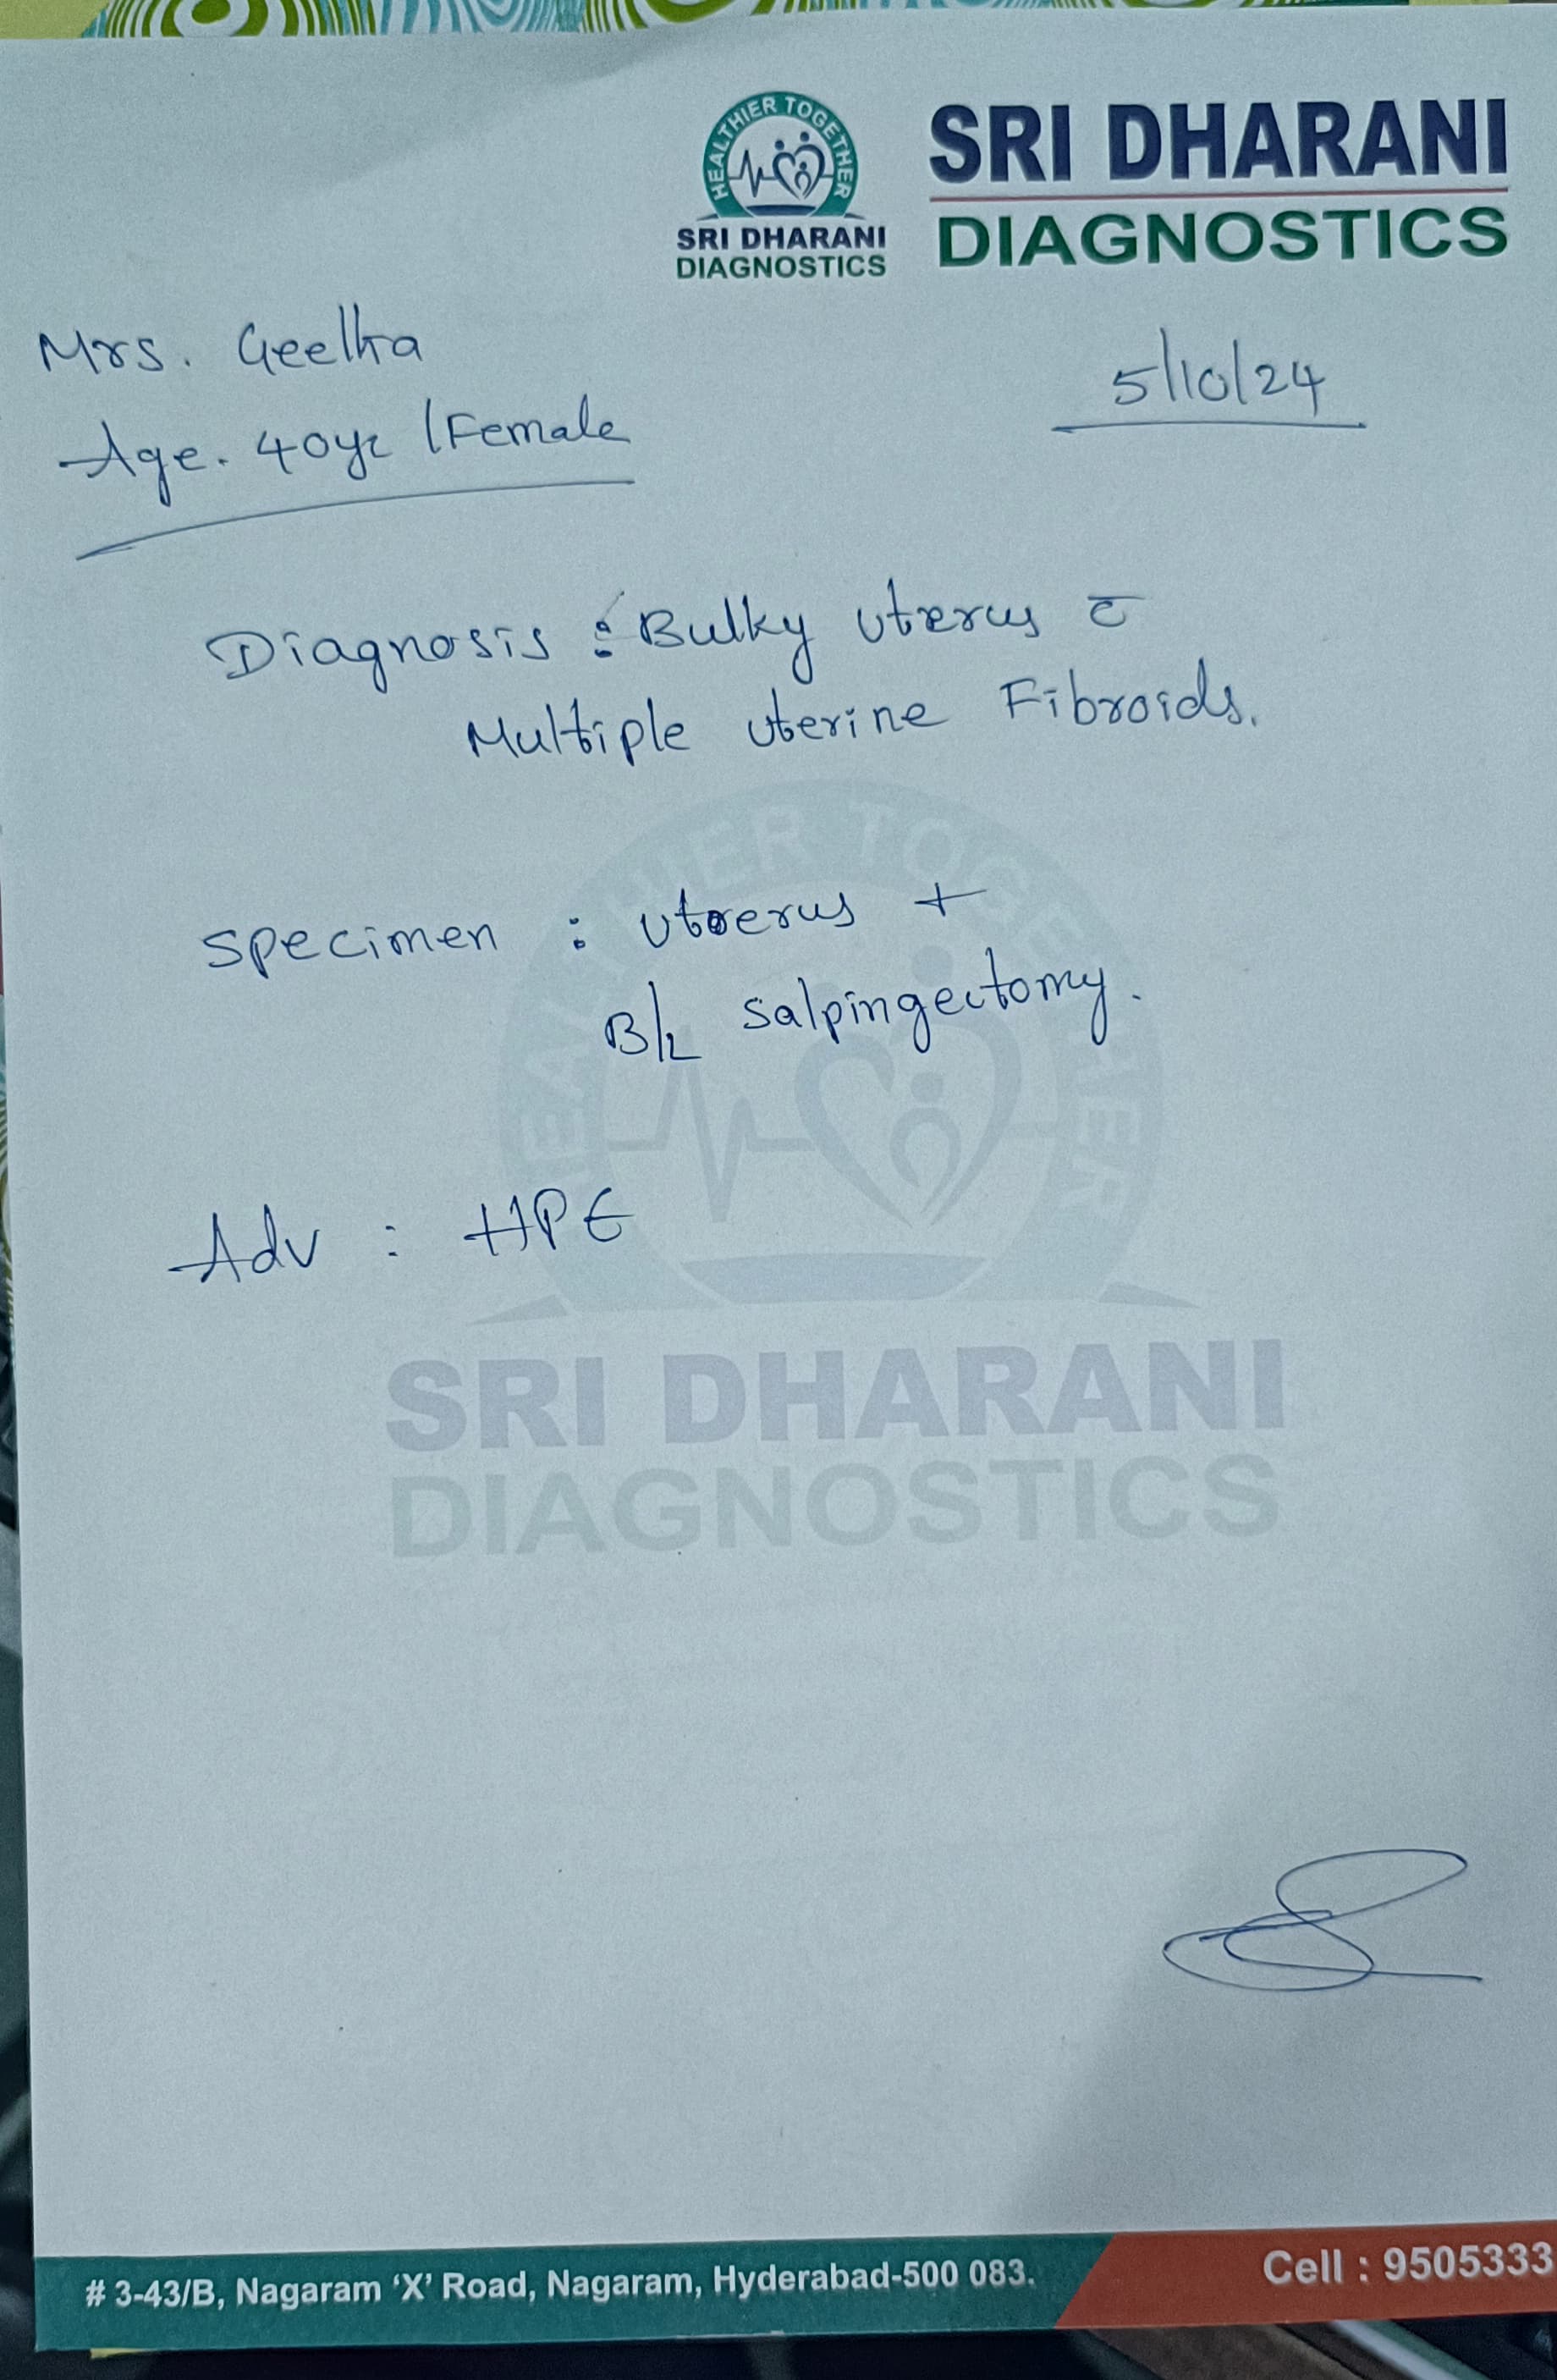 HEALTHIER TOGETHER
SRI DHARANI
DIAGNOSTICS
SRI DHARANI
DIAGNOSTICS
Mrs. Geetha
5/10/24
Age. 40yr / Female
Diagnosis : Bulky uterus c̄
Multiple uterine Fibroids.
Specimen : uterus +
B/L salpingectomy.
Adv : HPE
HEALTHIER TOGETHER
SRI DHARANI
DIAGNOSTICS
# 3-43/B, Nagaram ‘X’ Road, Nagaram, Hyderabad-500 083.
Cell : 9505333